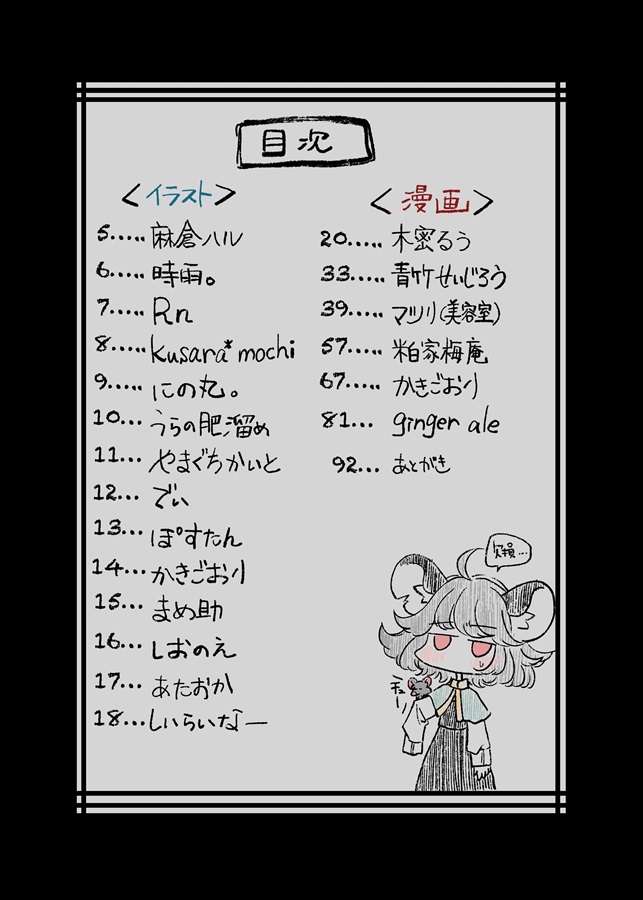 目次
〈イラスト〉
5..... 麻倉ハル
6..... 時雨。
7..... Rn
8..... kusara*mochi
9..... にの丸。
10... うらの肥溜め
11... やまぐちかいと
12... でい
13... ぽすたん
14... かきごおり
15... まめ助
16... しおのえ
17... あたおか
18... しいらいなー
〈漫画〉
20..... 木蜜るう
33..... 青竹せいじろう
39..... マツリ(美容室)
57..... 粕家梅庵
67..... かきごおり
81... ginger ale
92... あとがき
欠損...
チュー